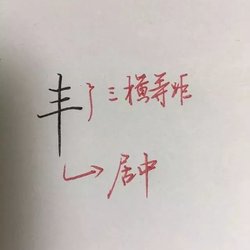 丰 三横等距
居中